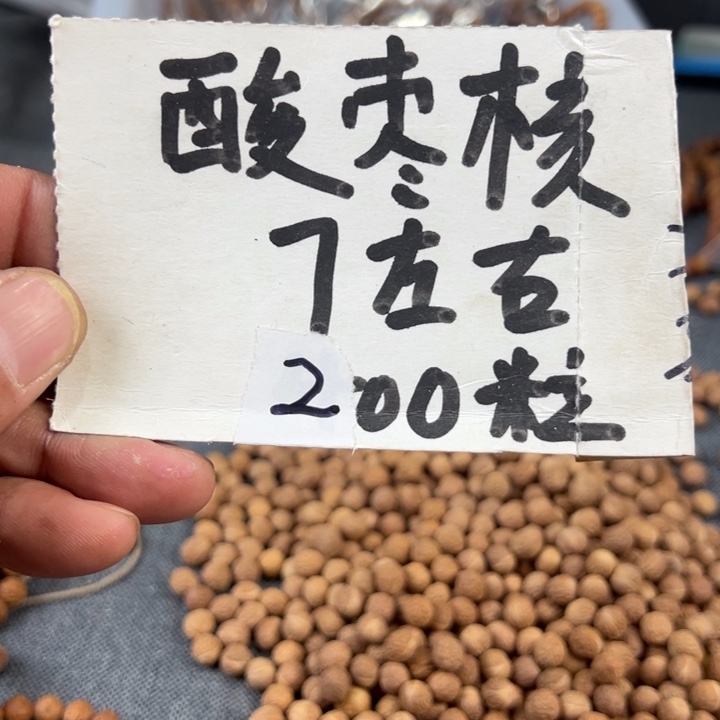 酸枣核
7左右
200粒